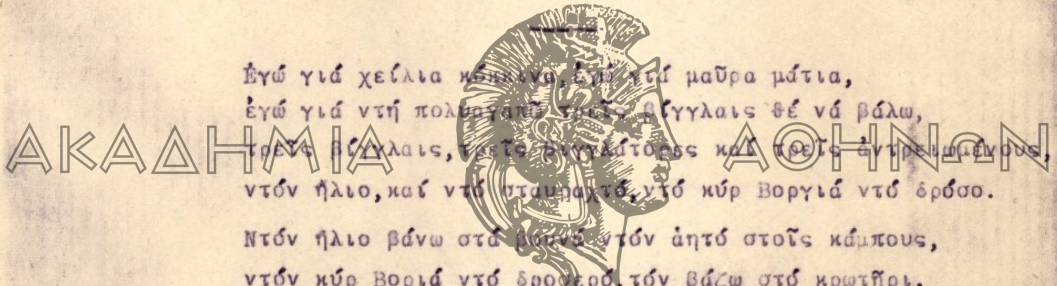 Ἐγώ γιά χείλια κόκκινα, ἐγώ γιά μαῦρα μάτια,
ἐγώ γιά ντή πολυαγαπῶ τρεῖς βίγγλαις θέ νά βάλω,
τρεῖς βίγγλαις, τρεῖς βιγγλάτορες καί τρεῖς ἀντρειωμένους,
ντόν ἥλιο, καί ντό σταυραητό, ντό κύρ Βοργιά ντό δρόσο.
Ντόν ἥλιο βάνω στά βουνά ντόν ἀητό στοῖς κάμπους,
ντόν κύρ Βοριά ντό δροσερό, τόν βάζω στό κρωτῆρι.
ΑΚΑΔΗΜΙΑ ΑΘΗΝΩΝ